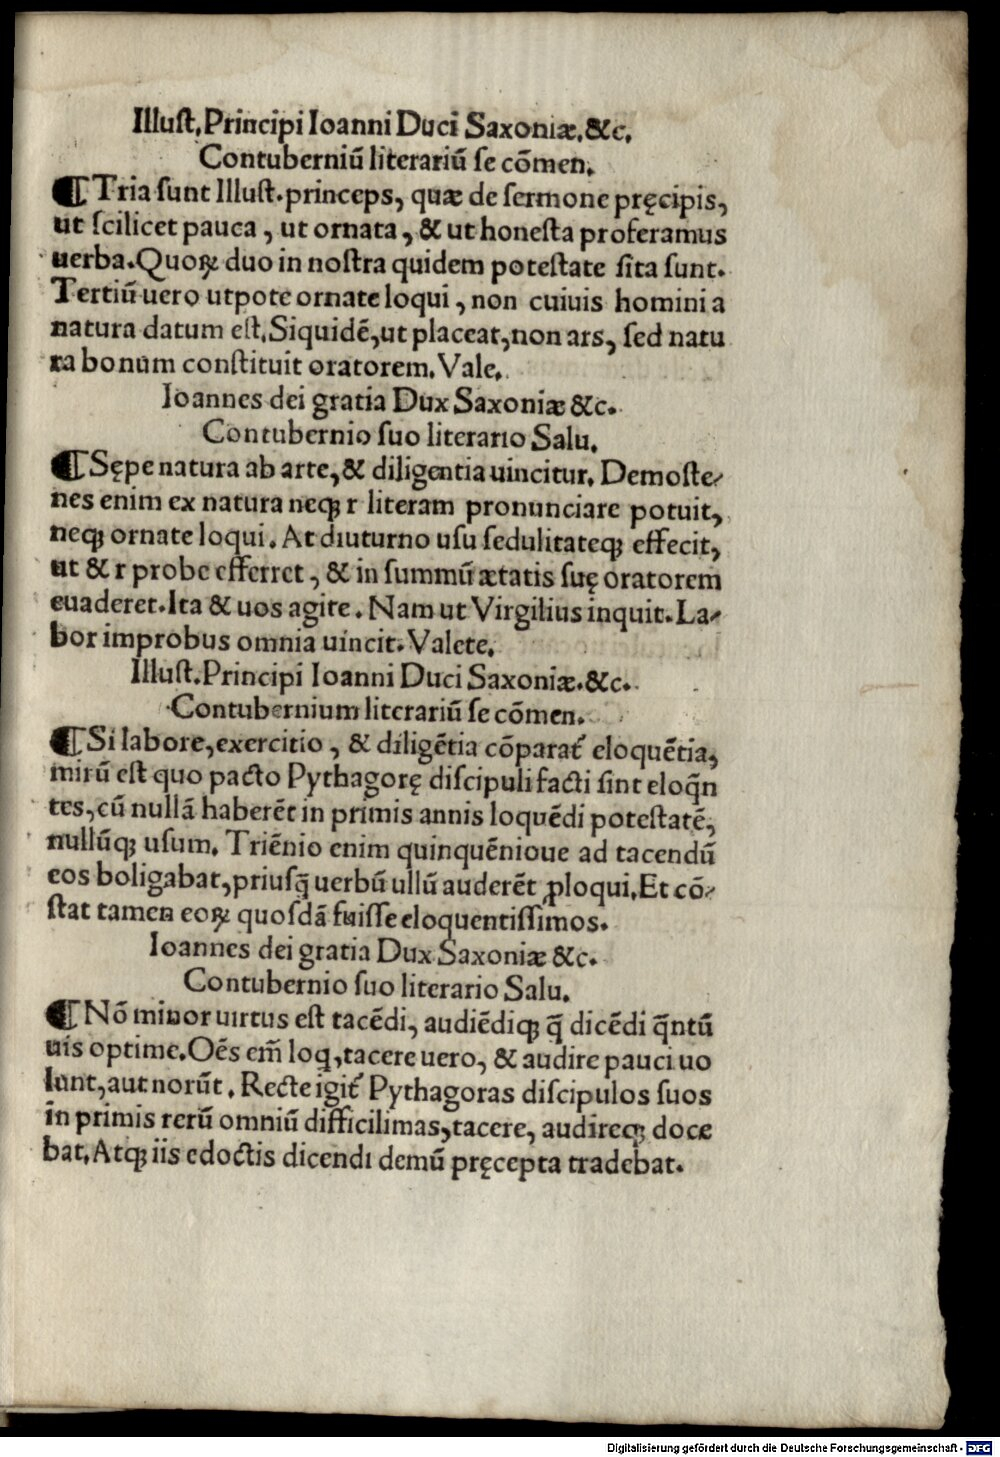 Illuſt. Principi Ioanni Duci Saxoniæ. &c.
Contuberniū literariū ſe cōmen.
¶ Tria ſunt Illuſt. princeps, quæ de ſermone pręcipis,
ut ſcilicet pauca, ut ornata, & ut honeſta proferamus
uerba. Quoꝝ duo in noſtra quidem poteſtate ſita ſunt.
Tertiū uero utpote ornate loqui, non cuiuis homini a
natura datum eſt. Siquidē, ut placeat, non ars, ſed natu
ra bonum conſtituit oratorem. Vale.
Ioannes dei gratia Dux Saxoniæ &c.
Contubernio ſuo literario Salu.
¶ Sępe natura ab arte, & diligentia uincitur. Demoſte⸗
nes enim ex natura neqꝫ r literam pronunciare potuit,
neqꝫ ornate loqui. At diuturno uſu ſedulitateqꝫ effecit,
ut & r probe efferret, & in ſummū ætatis ſuę oratorem
euaderet. Ita & uos agite. Nam ut Virgilius inquit. La⸗
bor improbus omnia uincit. Valete.
Illuſt. Principi Ioanni Duci Saxoniæ. &c.
Contubernium literariū ſe cōmen.
¶ Si labore, exercitio, & diligētia cōparat᷑ eloquētia,
mirū eſt quo pacto Pythagorę diſcipuli facti ſint eloq̄n
tes, cū nullā haberēt in primis annis loquēdi poteſtatē,
nullūqꝫ uſum. Triēnio enim quinquēnioue ad tacendū
eos boligabat, priuſq̄ uerbū ullū auderēt ꝓloqui. Et cō⸗
ſtat tamen eoꝝ quoſdā fuiſſe eloquentiſſimos.
Ioannes dei gratia Dux Saxoniæ &c.
Contubernio ſuo literario Salu.
¶ Nō minor uirtus eſt tacēdi, audiēdiqꝫ q̄ dicēdi q̄ntū
uis optime. Oēs em̄ loq̄, tacere uero, & audire pauci uo
lunt, aut norūt. Recte igit᷑ Pythagoras diſcipulos ſuos
in primis rerū omniū difficilimas, tacere, audireqꝫ doce
bat. Atqꝫ iis edoctis dicendi demū pręcepta tradebat.
Digitalisierung gefördert durch die Deutsche Forschungsgemeinschaft - DFG